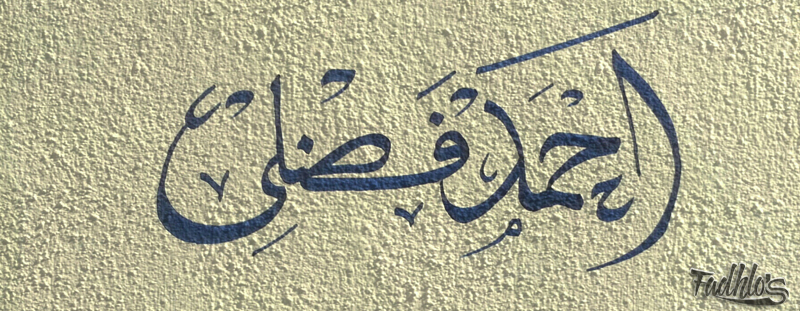 احمد فضلي
Fadhlo's